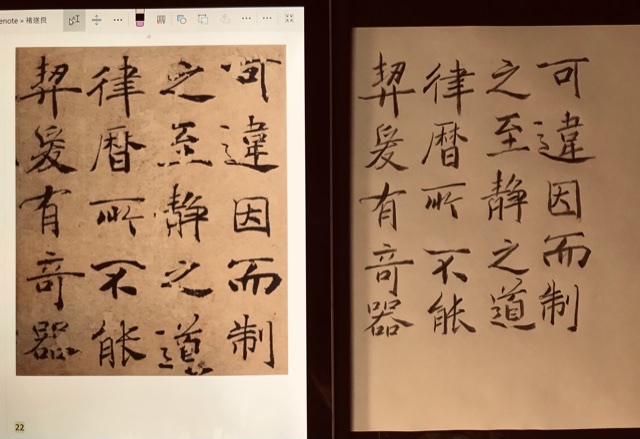 enote » 褚遂良
可違因而制
之至静之道
律曆所不能
契爰有奇器
22
可違因而制
之至静之道
律曆所不能
契爰有奇器